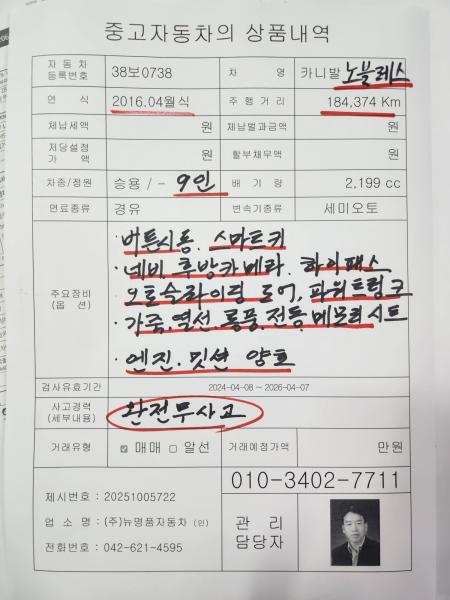 중고자동차의 상품내역
자 동 차 등록번호 38보0738 차 명 카니발 노블레스
연 식 2016.04월식 주 행 거 리 184,374 Km
체납세액 원 체납벌과금액 원
저당설정 가 액 원 할부채무액 원
차종/정원 승용 / - 9인 배 기 량 2,199 cc
연료종류 경유 변속기종류 세미오토
주요장비 (옵 션)
·버튼시동. 스마트키
·네비 후방카메라. 하이패스
오토슬라이딩 도어, 파워트렁크
·가죽.열선.통풍.전동.메모리시트
·엔진.밋션 양호
검사유효기간 2024-04-08 ~ 2026-04-07
사고경력 (세부내용) 완전무사고
거래유형 ☑ 매매 □ 알선 거래예정가액 만원
010-3402-7711
제시번호 : 20251005722
업 소 명 : (주)뉴명품자동차 (인)
전화번호 : 042-621-4595
관 리
담당자